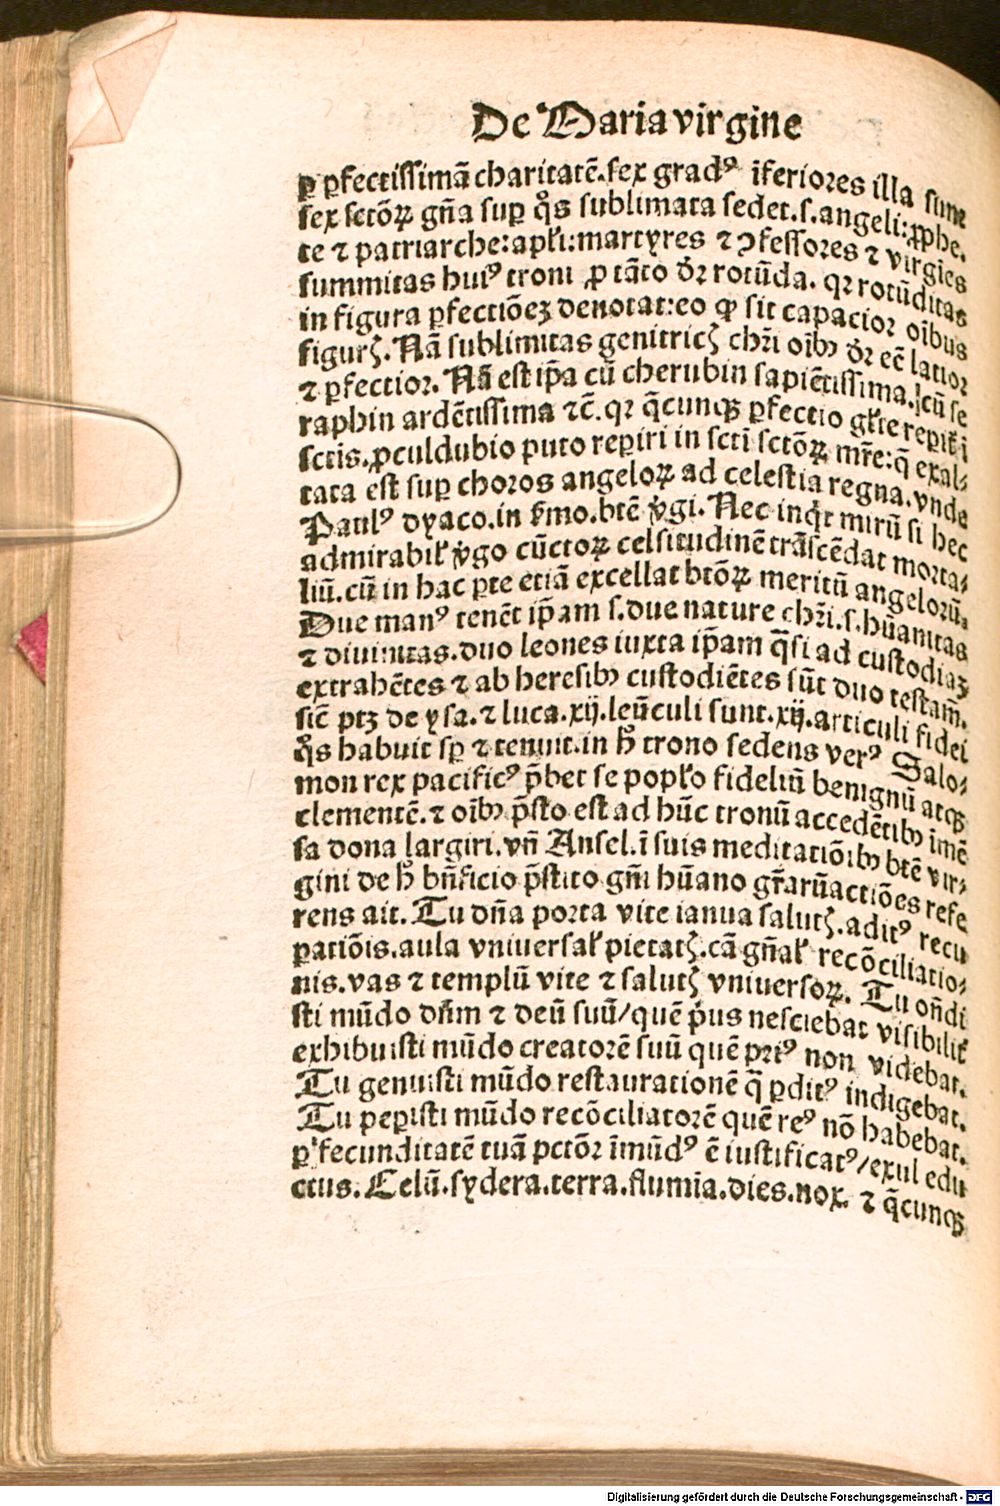 De Maria virgine
ꝑ ꝑfectissimā charitatē. sex gradꝰ īferiores illa sunt
sex sctōꝝ gña suꝑ qͦs sublimata sedet. s. angeli: ꝓphe.
te ⁊ patriarche: apłi: martyres ⁊ ꝯfessores ⁊ virgīes
summitas huiꝰ troni ꝓ tāto dr̄ rotūda. qꝛ rotūditas
in figura ꝑfectiōeꝫ denotat: eo ꝙ sit capacior oībus
figurꝭ. Nā sublimitas genitricꝭ chr̄i oībꝰ dr̄ eē latior
⁊ ꝑfectior. Nā est ip̄a cū cherubin sapiētissima. cū se
raphin ardētissima ⁊c̄. qꝛ q̄cunqꝫ ꝑfectio gl̄ie reperit̄ ī
sctis. ꝓculdubio puto reperiri in scti sctōꝝ mr̄e: q̄ exal-
tata est suꝑ choros angeloꝝ ad celestia regna. vnde
Paulꝰ dyaco. in s̄mo. btē v̓gi. Nec inqͥt mirū si hec
admirabil̓ v̓go cūctoꝝ celsitudinē trāscēdat morta-
liū. cū in hac ꝑte etiā excellat btōꝝ meritū angelorū.
Due manꝰ tenēt ip̄am s. due nature chr̄i. s. hūanitas
⁊ diuinitas. duo leones iuxta ip̄am q̄si ad custodiaꝫ
extrahētes ⁊ ab heresibꝰ custodiētes sūt duo testam̄.
sic̄ ptꝫ de ysa. ⁊ luca. xij. leūculi sunt. xij. articuli fidei
qͦs habuit sꝑ ⁊ tenuit. in hͦ trono sedens verꝰ Salo-
mon rex pacificꝰ p̄bet se popl̓o fideliū benignū atqꝫ
clementē. ⁊ oībꝰ p̄sto est ad hūc tronū accedētibꝰ īmē
sa dona largiri. vñ Ansel. ī suis meditatiōibꝰ btē vir-
gini de hͦ bn̄ficio p̄stito gn̄i hūano gr̄arū actiōes refe
rens ait. Tu dn̄a porta vite ianua salutꝭ. aditꝰ recu
ꝑatiōis. aula vniuersal̓ pietatꝭ. cā gn̄al̓ recōciliatio-
nis. vas ⁊ templū vite ⁊ salutꝭ vniuersoꝝ. Tu on̄di
sti mūdo dn̄m ⁊ deū suū/quē p̓us nesciebat visibilit̓
exhibuisti mūdo creatorē suū quē priꝰ non videbat.
Tu genuisti mūdo restaurationē q̄ ꝑditꝰ indigebat.
Tu peꝑisti mūdo recōciliatorē quē reꝰ nō habebat.
ꝑ fecunditatē tuā pctōr īmūdꝰ ē iustificatꝰ/exul edu
ctus. Celū. sydera. terra. flumīa. dies. nox. ⁊ q̄cunqꝫ
Digitalisierung gefördert durch die Deutsche Forschungsgemeinschaft - DFG